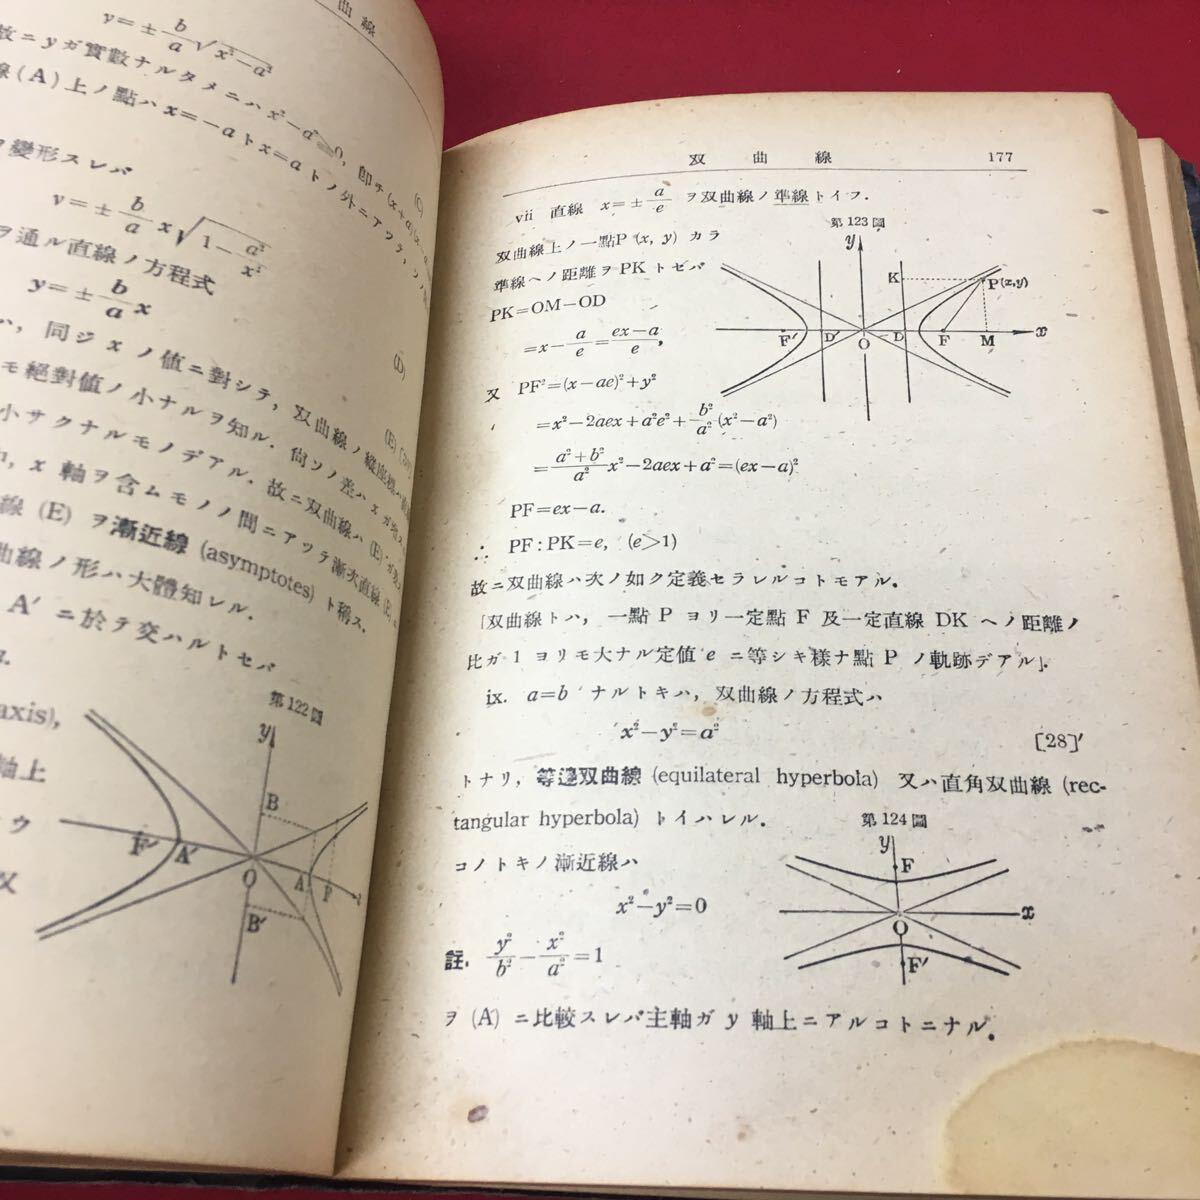 曲線
y=±b/a√x²−a²
故ニyガ實數ナルタメニハx²−a²≧0, 卽チ(x+a)(x−a
線(A)上ノ點ハx=−aトx=aトノ外ニアツテ,
(C)
ヲ變形スレバ
y=±b/a x√1−a²/x²
ヲ通ル直線ノ方程式
y=±b/a x
(D)
ハ, 同ジxノ値ニ對シテ, 双曲線ノ縱座標ハ
(E)
モ絕對値ノ小ナルヲ知ル. 尙ソノ差ハxガ
小サクナルモノデアル. 故ニ双曲線ハ(E)
x軸ヲ含ムモノノ間ニアツテ漸次直線(E)ニ
線(E)ヲ漸近線(asymptotes)ト稱ス.
曲線ノ形ハ大體知レル.
A′ニ於テ交ハルトセバ
第122圖
axis),
軸上
y
B
F′
A′
O
A
F
B′
双曲線 177
vii 直線 x=±a/e ヲ双曲線ノ準線トイフ.
双曲線上ノ一點P(x, y)カラ
準線ヘノ距離ヲPKトゼバ
PK=OM−OD
=x−a/e=ex−a/e,
又 PF²=(x−ae)²+y²
第123圖
y
K
P(x,y)
F′
D′
O
D
F
M
x
=x²−2aex+a²e²+b²/a²(x²−a²)
=a²+b²/a² x²−2aex+a²=(ex−a)²
PF=ex−a.
∴ PF:PK=e, (e>1)
故ニ双曲線ハ次ノ如ク定義セラレルコトモアル.
「双曲線トハ, 一點 P ヨリ一定點 F 及一定直線 DK ヘノ距離ノ
比ガ 1 ヨリモ大ナル定値 e ニ等シキ樣ナ點 P ノ軌跡デアル」.
ix. a=b ナルトキハ, 双曲線ノ方程式ハ
x²−y²=a² [28]′
トナリ, 等邊双曲線(equilateral hyperbola) 又ハ直角双曲線(rec-
tangular hyperbola)トイハレル.
コノトキノ漸近線ハ
x²−y²=0
第124圖
y
F
x
O
F′
註. y²/b²−x²/a²=1
ヲ(A)ニ比較スレバ主軸ガ y 軸上ニアルコトニナル.